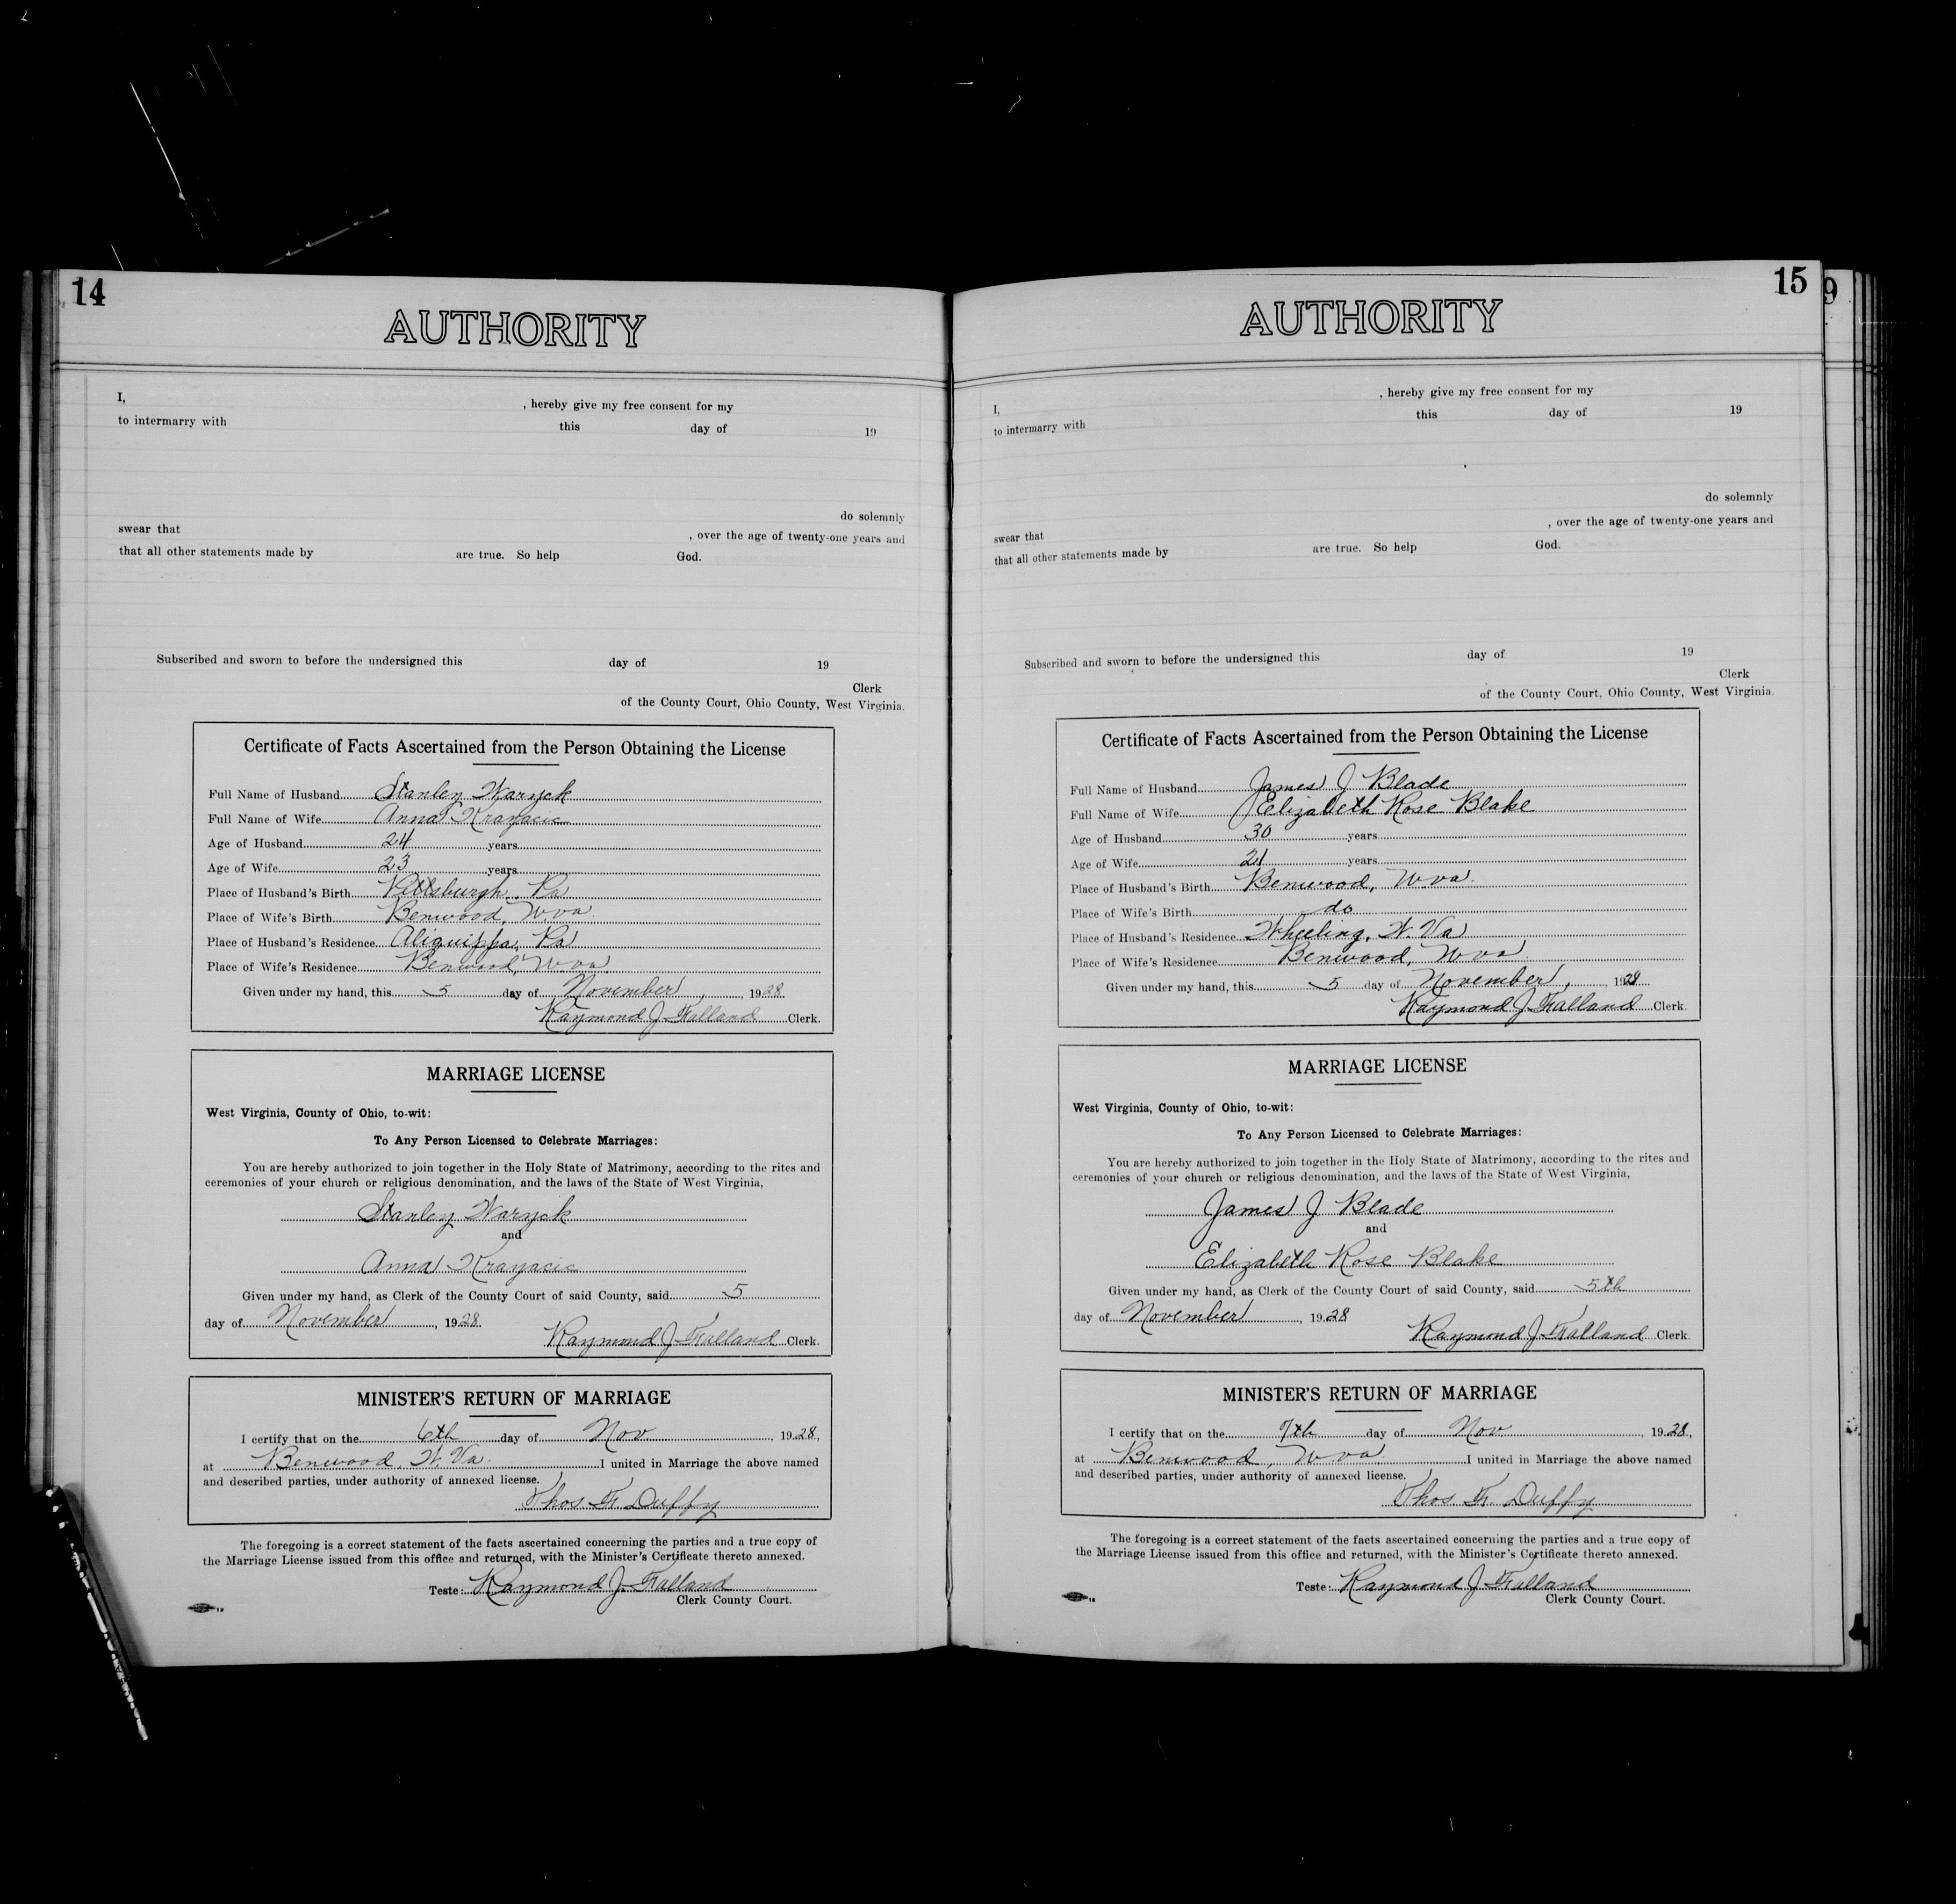 14
AUTHORITY
I, , hereby give my free consent for my
to intermarry with this day of 19
do solemnly
swear that , over the age of twenty-one years and
that all other statements made by are true. So help God.
Subscribed and sworn to before the undersigned this day of 19
Clerk
of the County Court, Ohio County, West Virginia.
Certificate of Facts Ascertained from the Person Obtaining the License
Full Name of Husband Stanley Waryck
Full Name of Wife Anna Krayacic
Age of Husband 24 years
Age of Wife 23 years
Place of Husband's Birth Pittsburgh, Pa
Place of Wife's Birth Benwood, W va.
Place of Husband's Residence Aliquippa, Pa
Place of Wife's Residence Benwood, W va
Given under my hand, this 5 day of November, 1928
Raymond J Falland Clerk.
MARRIAGE LICENSE
West Virginia, County of Ohio, to-wit:
To Any Person Licensed to Celebrate Marriages:
You are hereby authorized to join together in the Holy State of Matrimony, according to the rites and
ceremonies of your church or religious denomination, and the laws of the State of West Virginia,
Stanley Waryck
and
Anna Krayacic
Given under my hand, as Clerk of the County Court of said County, said 5
day of November, 1928
Raymond J Falland Clerk.
MINISTER'S RETURN OF MARRIAGE
I certify that on the 6th day of Nov, 1928,
at Benwood, W. Va. I united in Marriage the above named
and described parties, under authority of annexed license.
Thos. F. Duffy
The foregoing is a correct statement of the facts ascertained concerning the parties and a true copy of
the Marriage License issued from this office and returned, with the Minister's Certificate thereto annexed.
Teste: Raymond J. Falland
Clerk County Court.
15
9
AUTHORITY
I, , hereby give my free consent for my
to intermarry with this day of 19
do solemnly
swear that , over the age of twenty-one years and
that all other statements made by are true. So help God.
Subscribed and sworn to before the undersigned this day of 19
Clerk
of the County Court, Ohio County, West Virginia.
Certificate of Facts Ascertained from the Person Obtaining the License
Full Name of Husband James J Blade
Full Name of Wife Elizabeth Rose Blake
Age of Husband 30 years
Age of Wife 21 years
Place of Husband's Birth Benwood, W va.
Place of Wife's Birth do
Place of Husband's Residence Wheeling, W. Va
Place of Wife's Residence Benwood, W va
Given under my hand, this 5 day of November, 1928
Raymond J. Falland Clerk.
MARRIAGE LICENSE
West Virginia, County of Ohio, to-wit:
To Any Person Licensed to Celebrate Marriages:
You are hereby authorized to join together in the Holy State of Matrimony, according to the rites and
ceremonies of your church or religious denomination, and the laws of the State of West Virginia,
James J Blade
and
Elizabeth Rose Blake
Given under my hand, as Clerk of the County Court of said County, said 5th
day of November, 1928
Raymond J. Falland Clerk.
MINISTER'S RETURN OF MARRIAGE
I certify that on the 7th day of Nov, 1928,
at Benwood, W. va. I united in Marriage the above named
and described parties, under authority of annexed license.
Thos. F. Duffy
The foregoing is a correct statement of the facts ascertained concerning the parties and a true copy of
the Marriage License issued from this office and returned, with the Minister's Certificate thereto annexed.
Teste: Raymond J Falland
Clerk County Court.